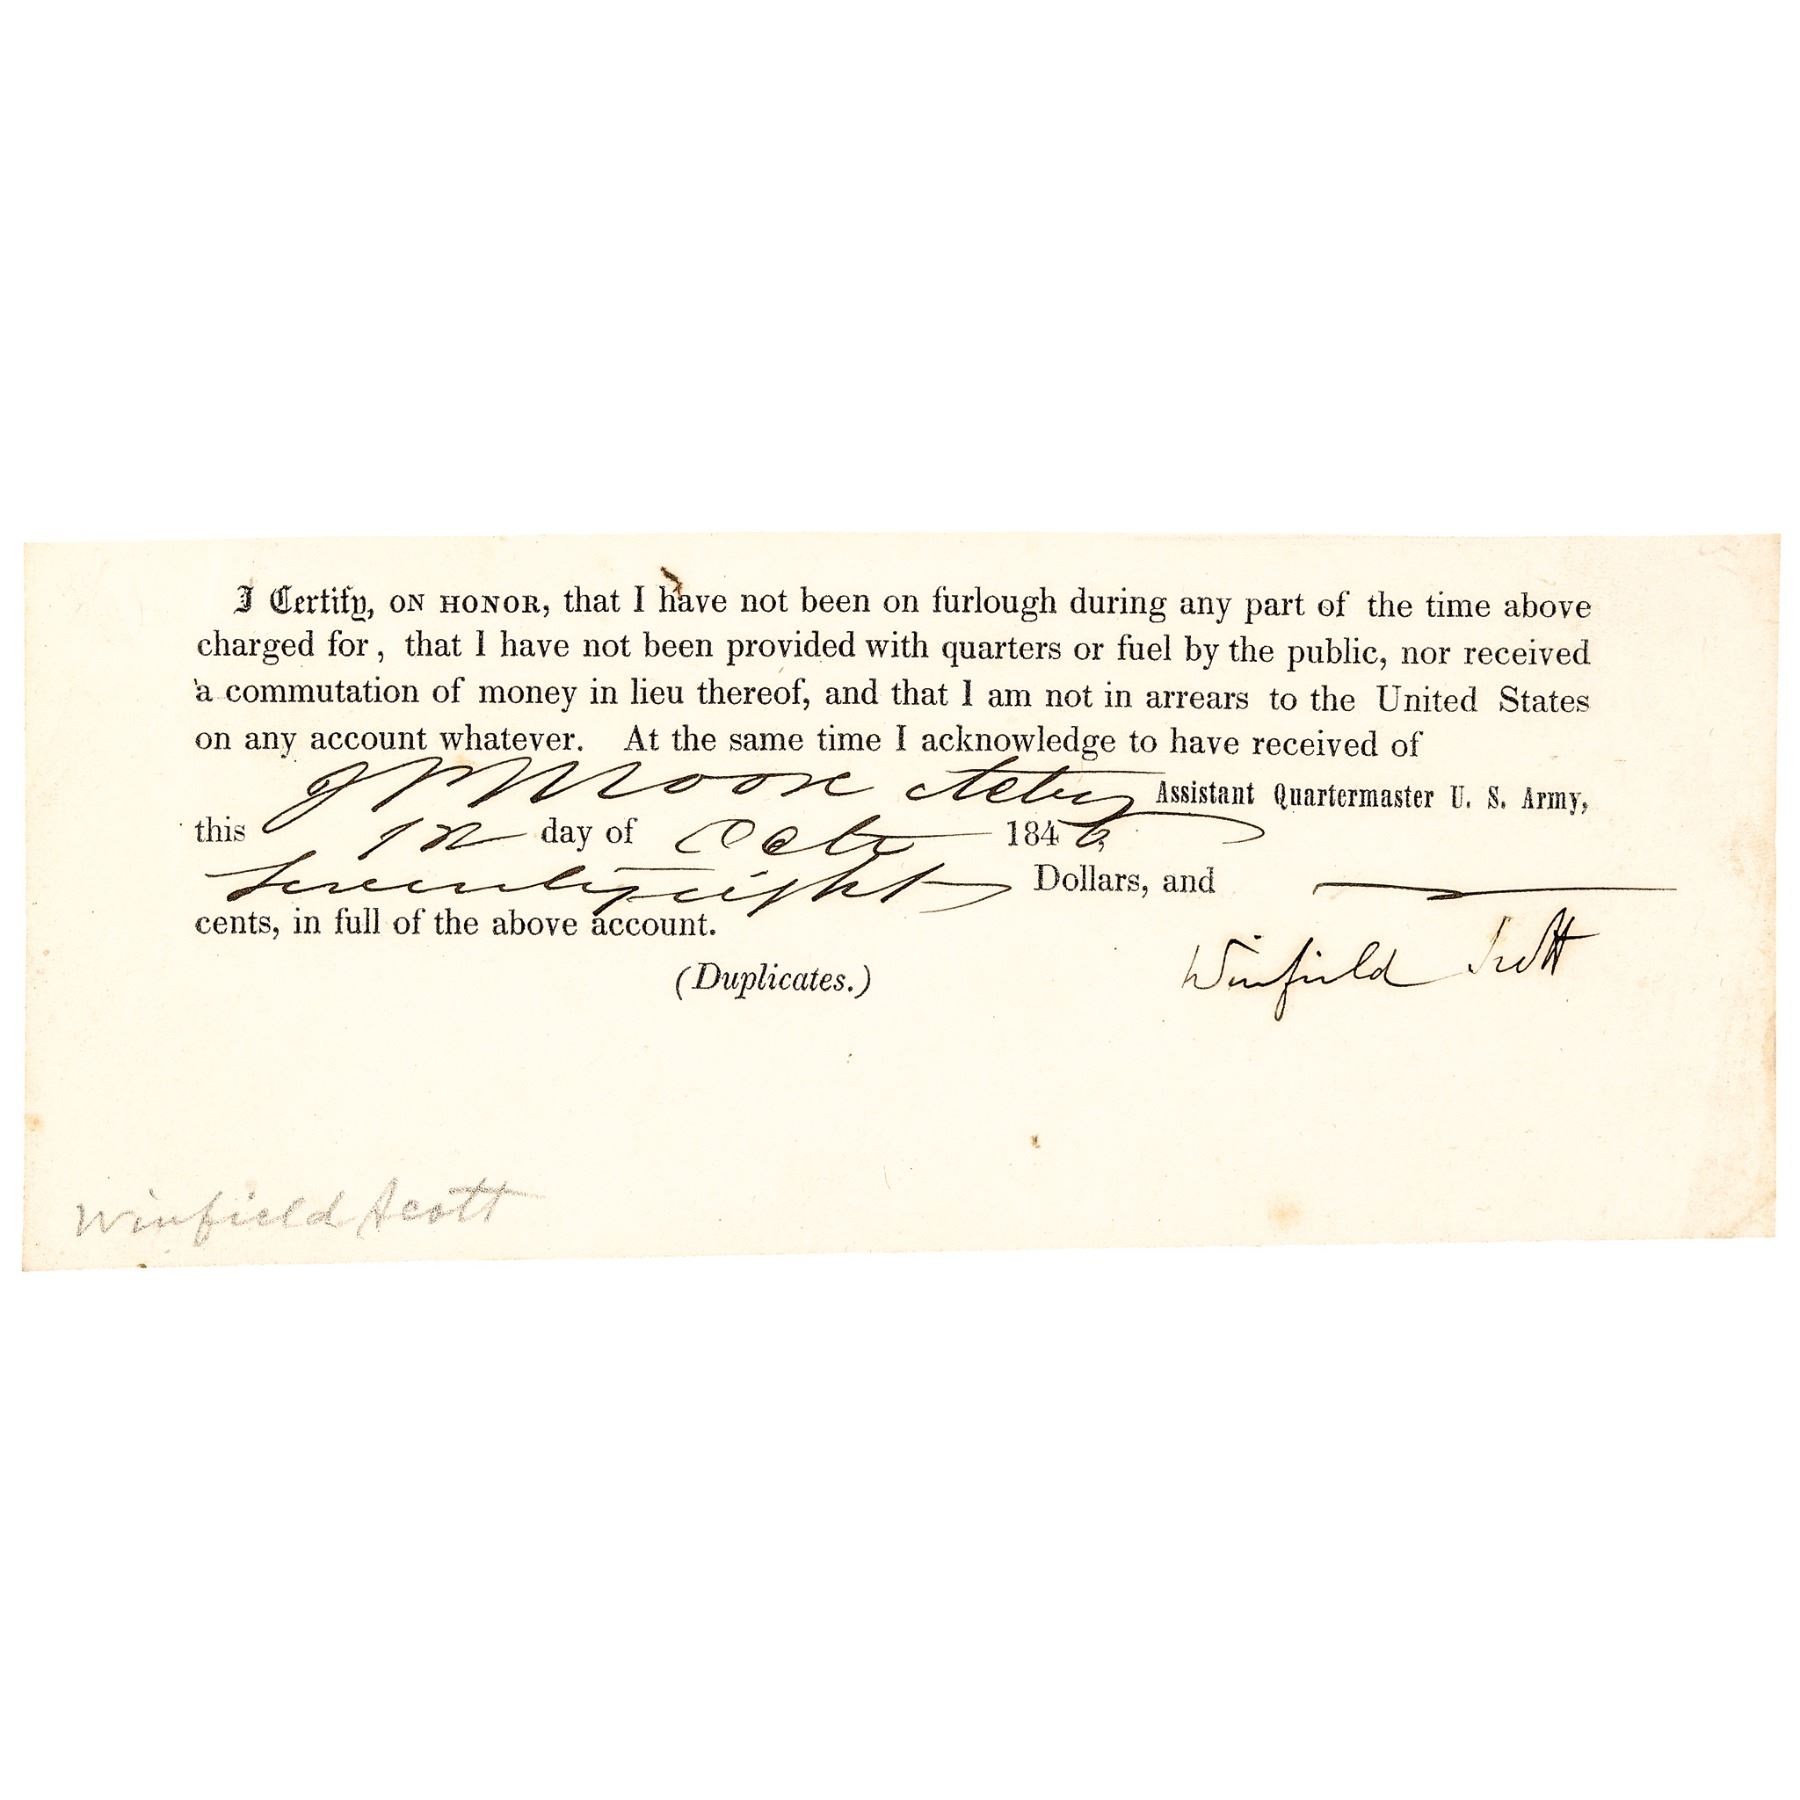 I Certify, ON HONOR, that I have not been on furlough during any part of the time above
charged for, that I have not been provided with quarters or fuel by the public, nor received
a commutation of money in lieu thereof, and that I am not in arrears to the United States
on any account whatever. At the same time I acknowledge to have received of
J P Moore Actng Assistant Quartermaster U. S. Army,
this day of Octr 1846
Seventyeight Dollars, and
cents, in full of the above account.
(Duplicates.)
Winfield Scott
Winfield Scott